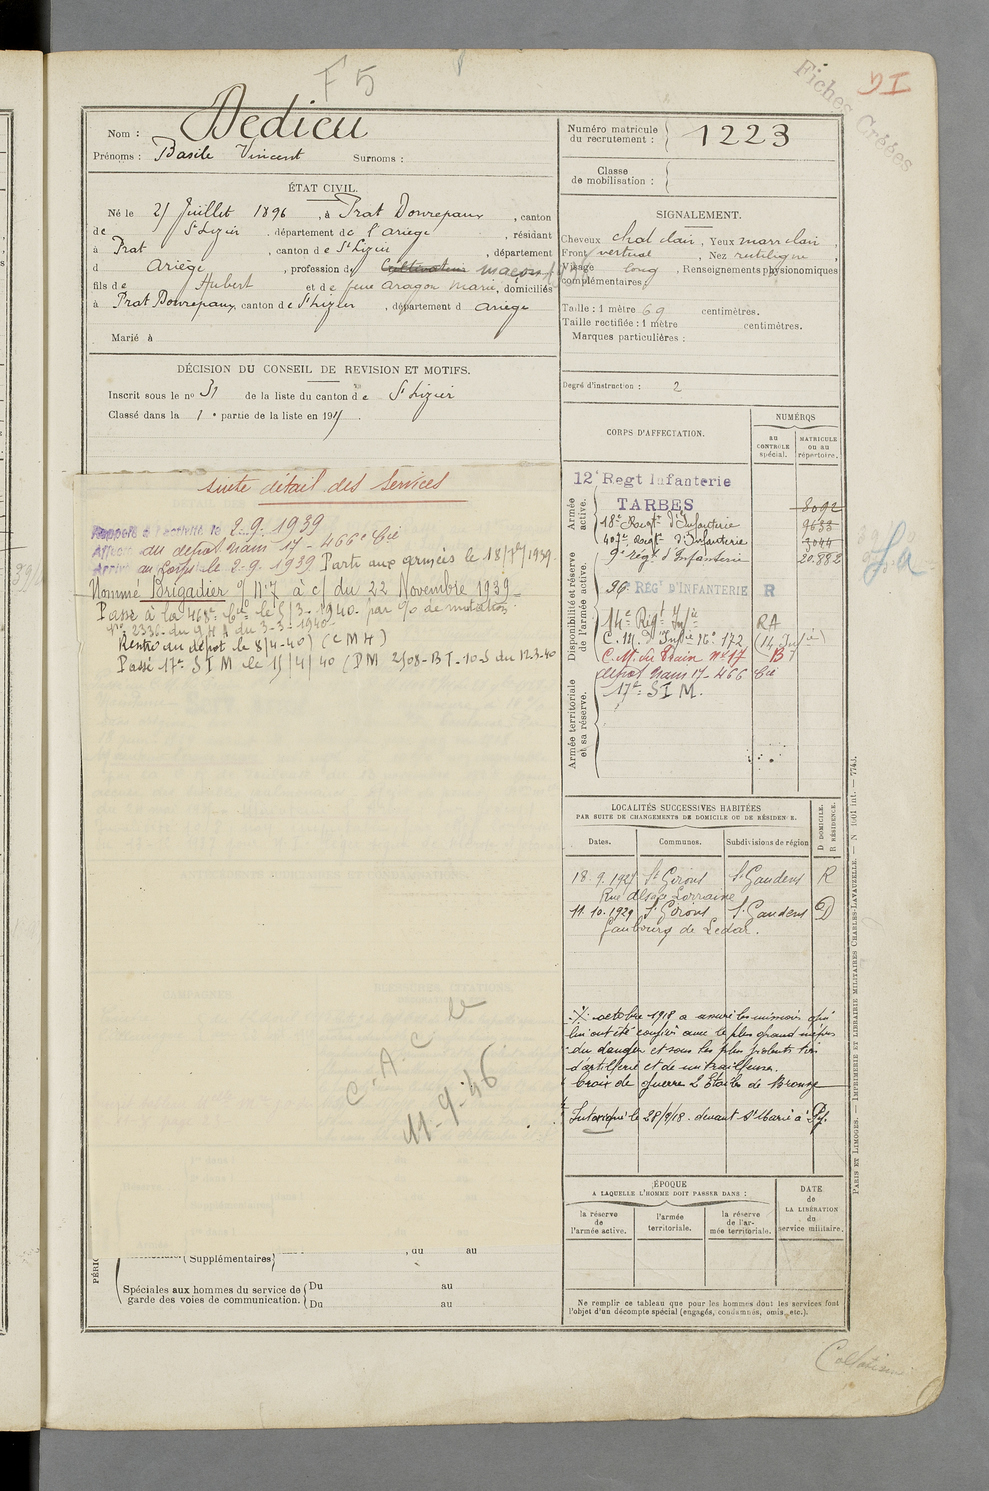 F 5
Fiches Créées
Nom : Dedieu
Prénoms : Basile Vincent Surnoms :
Numéro matricule du recrutement : 1223
Classe de mobilisation :
ÉTAT CIVIL.
Né le 21 Juillet 1896, à Prat Bonrepaux, canton
de St Lizier, département de l'Ariège, résidant
à Prat, canton de St Lizier, département
d Ariège, profession de Cultivateur maçon
fils de Hubert et de feue Aragon Marie, domiciliés
à Prat Bonrepaux, canton de St Lizier, département d Ariège
Marié à
SIGNALEMENT.
Cheveux chat clair, Yeux marr clair,
Front vertical, Nez rectiligne,
Visage long, Renseignements physionomiques
complémentaires
Taille : 1 mètre 69 centimètres.
Taille rectifiée : 1 mètre centimètres.
Marques particulières :
Degré d'instruction : 2
DÉCISION DU CONSEIL DE REVISION ET MOTIFS.
Inscrit sous le no 31 de la liste du canton de St Lizier
Classé dans la 1e partie de la liste en 191
suite détail des Services
Rappelé à l'activité le 2-9-1939
Affecté au dépôt train 17 - 466e Cie
Arrivé au Corps le 2-9-1939 Parti aux armées le 18/7bre/1939.
Nommé Brigadier O/ N°7 à c/ du 22 Novembre 1939.
Passé à la 468e Cie le 5/3-1940 par % de mutation
N° 2336 du Q H A du 3-3-1940
Rentré au dépôt le 8/4-40) (CMH)
Passé 17e S I M le 15/4/40 (DM 2508-BT-10-S du 12-3-40
C.A.C
11-9-46
CORPS D'AFFECTATION.
NUMÉROS
au CONTRÔLE spécial.
MATRICULE ou au répertoire.
Armée active.
12e Regt Infanterie
TARBES 8692
18e Regt d'Infanterie 9633
40e Regt d'Infanterie 3044
9e Rég. d'Infanterie 20.882
Disponibilité et réserve de l'armée active.
96e RÉGt D'INFANTERIE R
14e Rég Infie RA
C.M. d'Infie N° 172 (14 Infie)
C.M. du Train N° 17 B
dépôt train 17-466 Cie
17e S I M.
Armée territoriale et sa réserve.
LOCALITÉS SUCCESSIVES HABITÉES
PAR SUITE DE CHANGEMENTS DE DOMICILE OU DE RÉSIDENCE.
Dates. Communes. Subdivisions de région
D DOMICILE. R RÉSIDENCE.
18.9.1927 St Girons St Gaudens R
Rue Alsace Lorraine
11.10.1929 St Girons St Gaudens D
faubourg de Ledar.
octobre 1918 a assuré les missions qui
lui ont été confiées avec le plus grand mépris
du danger et sous les plus violents tirs
d'artillerie et de mitrailleuses.
Croix de guerre 2 Étoiles de Bronze
Intoxiqué le 28/9/18 devant Ste Marie à Py.
ÉPOQUE
A LAQUELLE L'HOMME DOIT PASSER DANS :
la réserve de l'armée active.
l'armée territoriale.
la réserve de l'armée territoriale.
DATE de LA LIBÉRATION du service militaire.
Supplémentaires , du au
Spéciales aux hommes du service de garde des voies de communication.
Du au
Du au
Ne remplir ce tableau que pour les hommes dont les services font l'objet d'un décompte spécial (engagés, condamnés, omis, etc.).
PARIS ET LIMOGES. — IMPRIMERIE ET LIBRAIRIE MILITAIRES CHARLES-LAVAUZELLE.